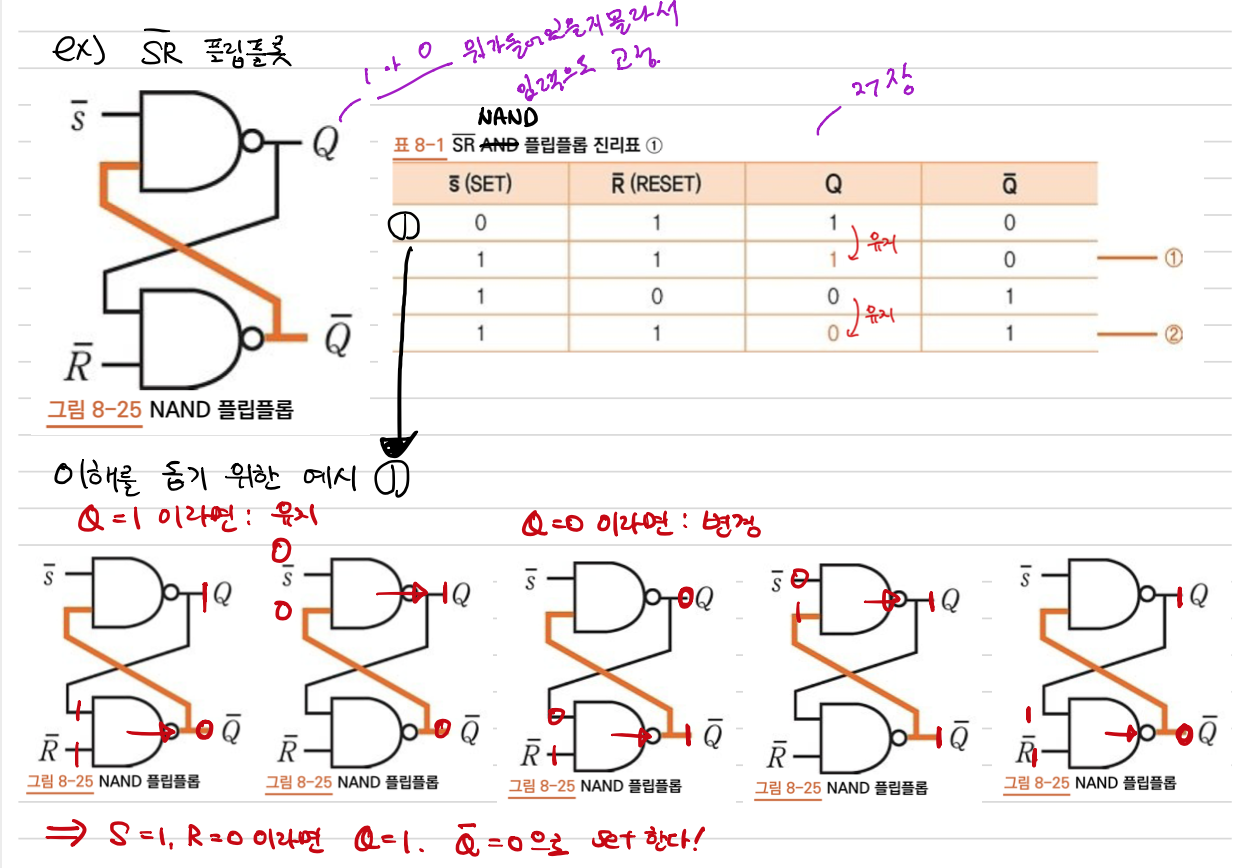 ex) S̅R̅ 플립플롯
1 or 0 뭐가들어있을지 몰라서
입력으로 고정.
27장
S̅
Q
R̅
Q̅
그림 8-25 NAND 플립플롭
NAND
표 8-1 S̅R̅ AND 플립플롭 진리표 ①
S̅ (SET) R̅ (RESET) Q Q̅
① 0 1 1 0
유지
1 1 1 0 ①
1 0 0 1
유지
1 1 0 1 ②
이해를 돕기 위한 예시 ①
Q=1 이라면: 유지
Q=0 이라면: 변경
S̅ 1 Q
1
R̅ 1 0 Q̅
그림 8-25 NAND 플립플롭
0
S̅ 1 Q
0
R̅ 0 Q̅
그림 8-25 NAND 플립플롭
S̅ 0 Q
0
R̅ 1 1 Q̅
그림 8-25 NAND 플립플롭
S̅ 0 1 Q
1
R̅ 1 Q̅
그림 8-25 NAND 플립플롭
S̅ 1 Q
1
R̅ 1 0 Q̅
그림 8-25 NAND 플립플롭
⇒ S=1, R=0 이라면 Q=1. Q̅=0으로 set 한다!